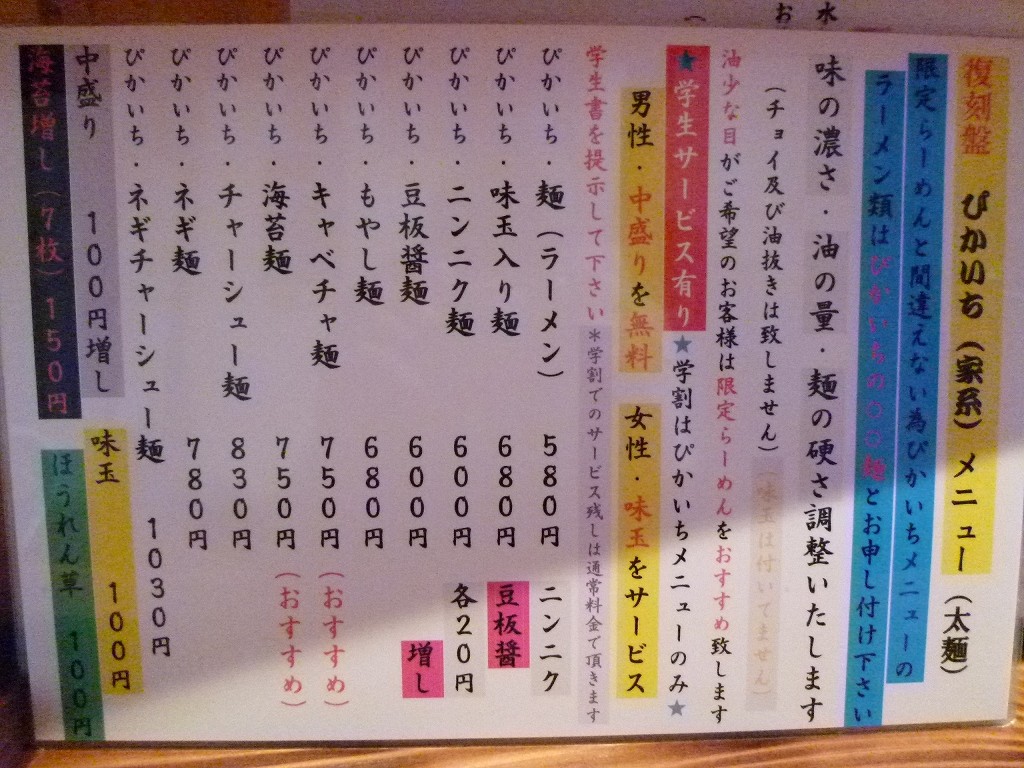 復刻盤 ぴかいち（家系）メニュー（太麺）
限定らーめんと間違えない為ぴかいちメニューの
ラーメン類はぴかいちの〇〇麺とお申し付け下さい
味の濃さ・油の量・麺の硬さ調整いたします
（チョイ及び油抜きは致しません）（味玉は付いてません）
油少な目がご希望のお客様は限定らーめんをおすすめ致します
★学生サービス有り★学割はぴかいちメニューのみ★
男性・中盛りを無料 女性・味玉をサービス
学生書を提示して下さい＊学割でのサービス残しは通常料金で頂きます
ぴかいち・麺（ラーメン） 580円 ニンニク
ぴかいち・味玉入り麺 680円 豆板醤
ぴかいち・ニンニク麺 600円 各20円
ぴかいち・豆板醤麺 600円 増し
ぴかいち・もやし麺 680円
ぴかいち・キャベチャ麺 750円（おすすめ）
ぴかいち・海苔麺 750円（おすすめ）
ぴかいち・チャーシュー麺 830円
ぴかいち・ネギ麺 780円
ぴかいち・ネギチャーシュー麺 1030円
中盛り 100円増し 味玉 100円
海苔増し（7枚）150円 ほうれん草 100円
水
お
（